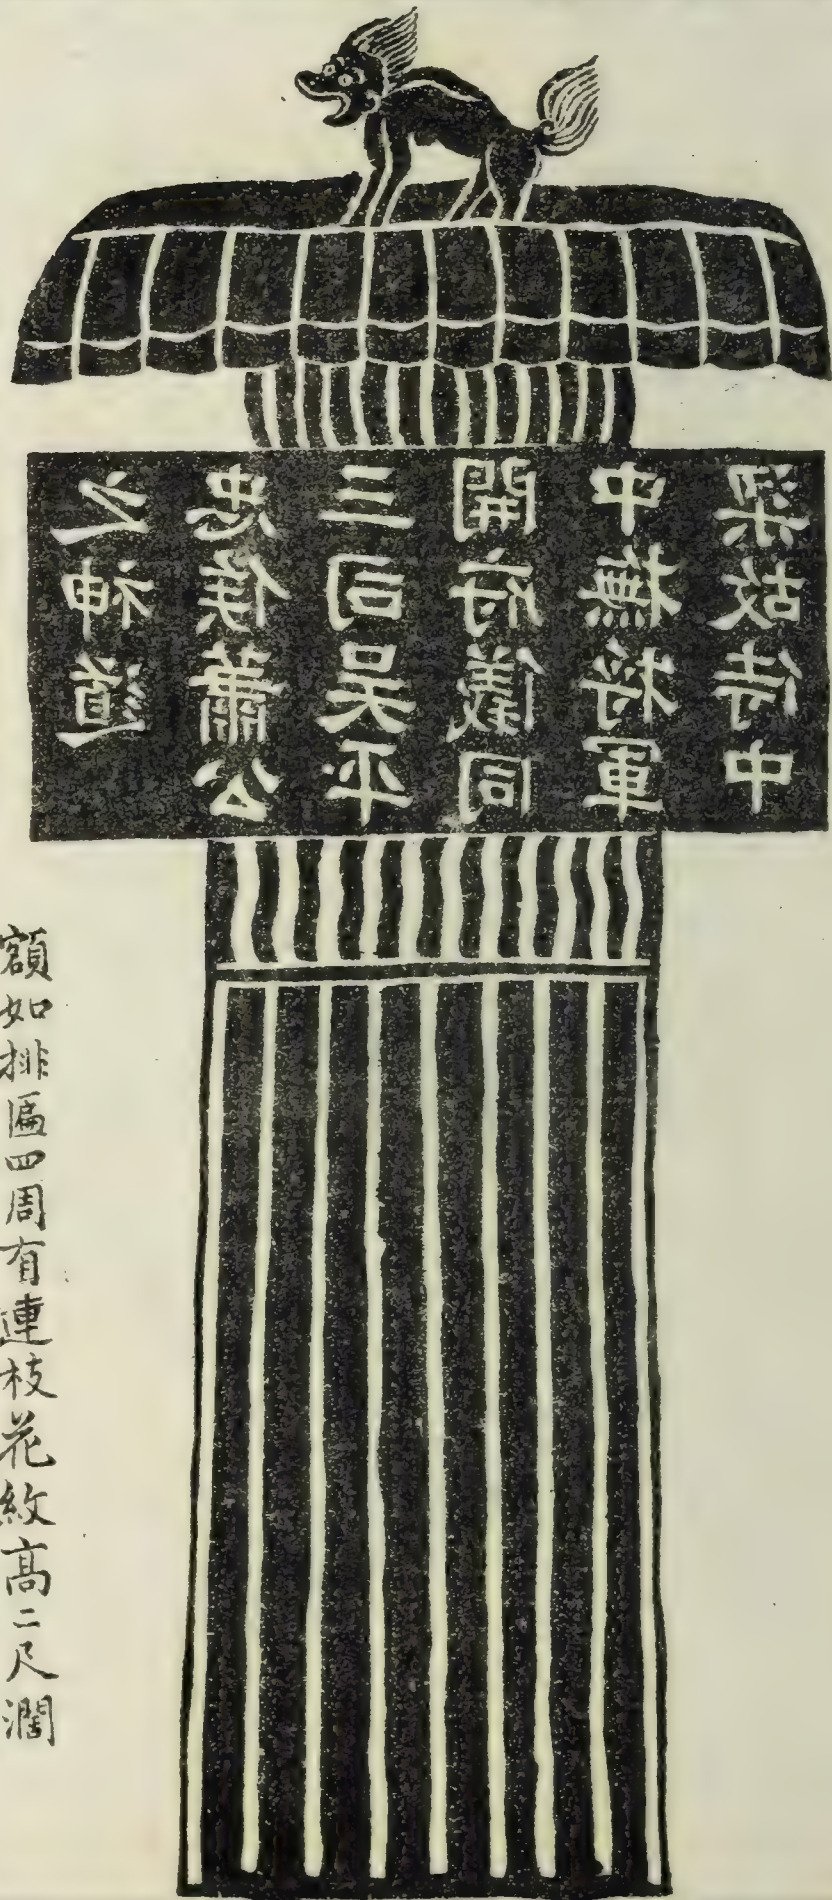 梁故侍中
中撫將軍
開府儀同
三司吴平
忠侯蕭公
之神道
額如排匾四周有連枝花紋高二尺濶